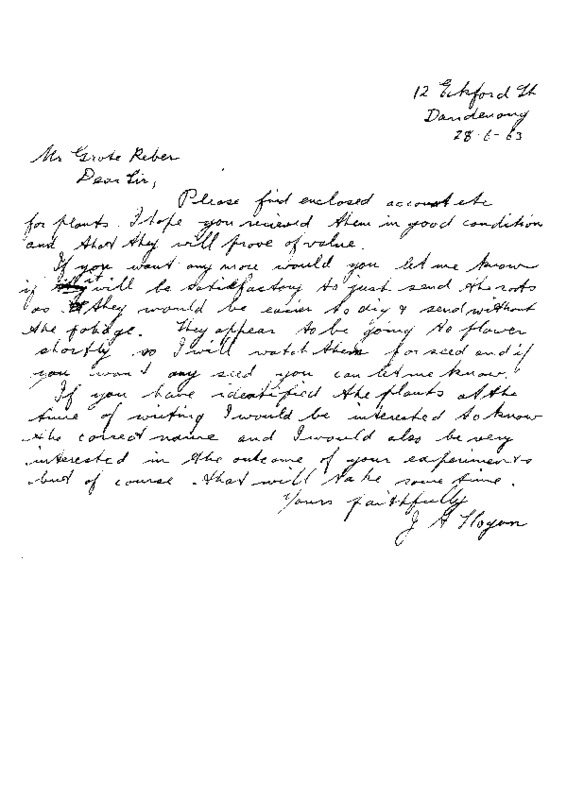 12 Eckford St
Dandenong
28-6-63
Mr Grote Reber
Dear Sir,
Please find enclosed account etc
for plants. I hope you recieved them in good condition
and that they will prove of value.
If you want any more would you let me know
if it will be satisfactory to just send the roots
as they would be easier to dig & send without
the foliage. They appear to be going to flower
shortly so I will watch them for seed and if
you want any seed you can let me know.
If you have identified the plants at the
time of writing I would be interested to know
the correct name and I would also be very
interested in the outcome of your experiments
but of course that will take some time.
Yours faithfully
J A Hogan